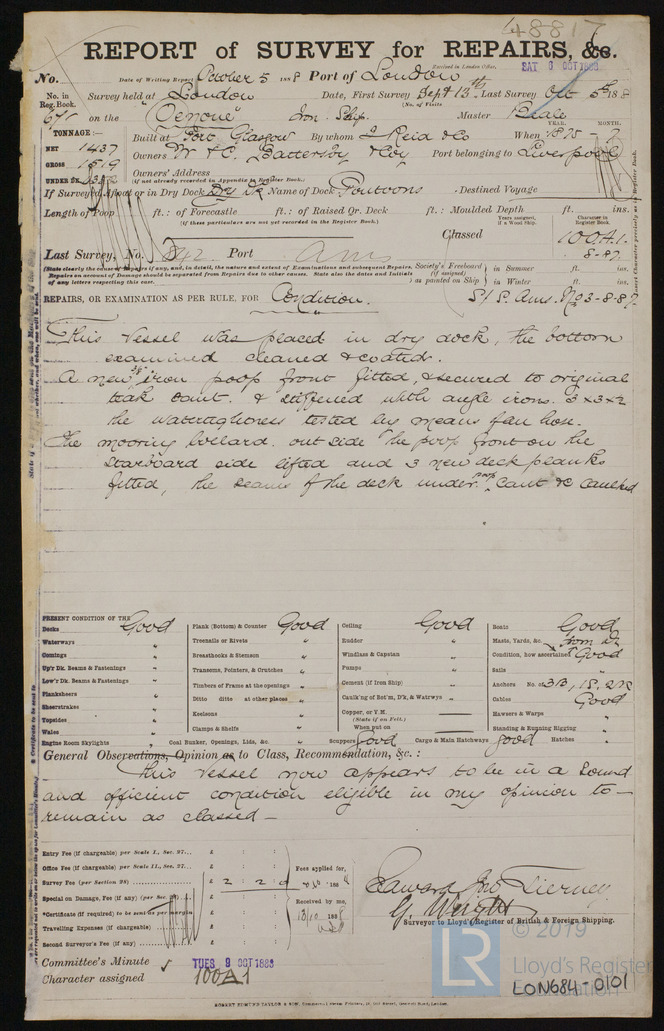 48817
REPORT of SURVEY for REPAIRS, &c.
Received in London Office,
No. Date of Writing Report October 5 1888 Port of London SAT 6 OCT 1888
No. in Reg. Book. Survey held at London Date, First Survey Sept 13th Last Survey Oct 5th 188
(No. of Visits
671 on the "Oenone" Iron Ship. Master Beale
TONNAGE:— Built at Port Glasgow By whom J Reid & Co When 1875 - 7
YEAR. MONTH.
NET 1437
GROSS 1519 Owners W & C. Port belonging to Liverpool
UNDER DK. 1372 Owners' Address
(if not already recorded in Appendix to Register Book.)
If Surveyed Afloat or in Dry Dock Dry Dk Name of Dock Pontoons Destined Voyage
Length of Poop ft.: of Forecastle ft.: of Raised Qr. Deck ft.: Moulded Depth ft. ins.
(if these particulars are not yet recorded in the Register Book.)
Years assigned, if a Wood Ship. Character in Register Book.
Classed 100A1.
8-87.
Last Survey, No. Port Ams
(State clearly the cause of Repairs if any, and, in detail, the nature and extent of Examinations and subsequent Repairs.
Repairs on account of Damage should be separated from Repairs due to other causes. State also the dates and Initials
of any letters respecting this case.
Society's Freeboard (if assigned) as painted on Ship in Summer ft. ins.
in Winter ft. ins.
REPAIRS, OR EXAMINATION AS PER RULE, FOR Condition. S/S. Ams. No3-8-87
This Vessel was placed in dry dock, the bottom
examined cleaned & coated.
A new iron poop front fitted, & secured to original
teak cant. & stiffened with angle irons. 3 x 3 x
the watertightness tested by means of an hose.
The mooring bollard. out side the poop front on the
starboard side lifted and 3 new deck planks
fitted, the seams of the deck under poop cant &c caulked
PRESENT CONDITION OF THE
Decks Good Plank (Bottom) & Counter Good Ceiling Good Boats Good
Waterways " Treenails or Rivets " Rudder " Masts, Yards, &c. from dk
Comings " Breasthooks & Stemson " Windlass & Capstan " Condition, how ascertained Good
Up'r Dk. Beams & Fastenings " Transoms, Pointers, & Crutches " Pumps " Sails "
Low'r Dk. Beams & Fastenings " Timbers of Frame at the openings " Cement (if Iron Ship) " Anchors No. of 3B, 1S, 2K
Planksheers " Ditto ditto at other places " Caulk'ng of Bot'm, D'k, & Watrwys " Cables Good
Sheerstrakes " Keelsons " Copper, or Y.M. Hawsers & Warps "
Topsides " Clamps & Shelfs " (State if on Felt.) Standing & Running Rigging "
Wales " When put on
Engine Room Skylights Coal Bunker, Openings, Lids, &c. " Scuppers Good Cargo & Main Hatchways Good Hatches "
General Observations, Opinion as to Class, Recommendation, &c. :
This Vessel now appears to be in a sound
and efficient condition eligible in my opinion to —
remain as classed —
Entry Fee (if chargeable) per Scale I., Sec. 27... £ : :
Office Fee (if chargeable) per Scale II., Sec. 27... £ : :
Survey Fee (per Section 28) £ 2 : 2 : 0
Special on Damage, Fee (if any) (per Sec. £ : :
*Certificate (if required) to be sent as per margin
Travelling Expenses (if chargeable) £ : :
Second Surveyor's Fee (if any) £ : :
Fees applied for, 188
Received by me, 13/10 188
Edward Jno Tierney
G. Wright
Surveyor to Lloyd's Register of British & Foreign Shipping.
Committee's Minute TUES 9 OCT 1888
Character assigned 100A1
© 2019
LR Lloyd's Register Foundation
LON684-0101
ROBERT EDMUND TAYLOR & SON,